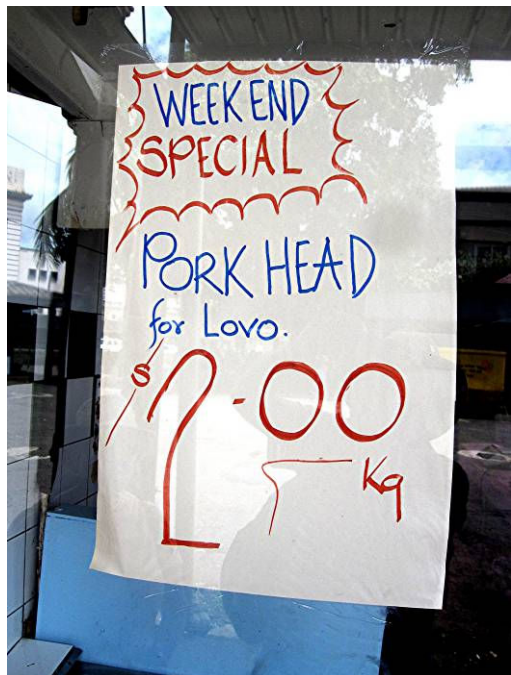 WEEKEND
SPECIAL
PORK HEAD
for Lovo.
$2.00
Kg